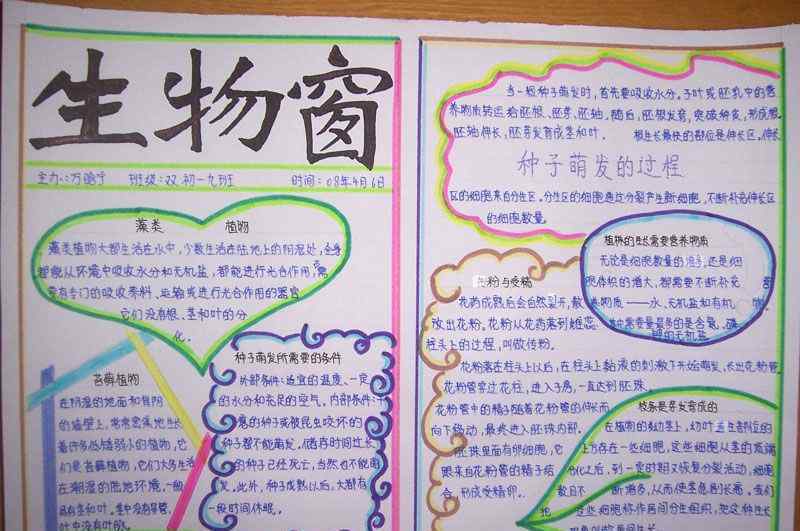 生物窗
主办:万晓宁 班级:双.初一九班 时间:08年4月6日
藻类 植物
藻类植物大都生活在水中,少数生活在陆地上的阴湿处,全身
都能从环境中吸收水分和无机盐,都能进行光合作用,需
要有专门的吸收养料、运输或进行光合作用的器官
它们没有根、茎和叶的分
化。
苔藓植物
在阴湿的地面和背阴
的墙壁上,常常密集地生长
着许多低矮弱小的植物,它
们是苔藓植物,它们大多生活
在潮湿的陆地环境,一般
具有茎和叶,茎中没有导管,
叶中没有叶脉
种子萌发所需要的条件
外部条件:适宜的温度、一定
的水分和充足的空气。内部条件:干
瘪的种子或被昆虫咬坏的
种子都不能萌发。储存时间过长
的种子已经死亡,当然也不能萌
发。此外,种子成熟以后,大都有
一段时间休眠。
当一粒种子萌发时,首先要吸收水分。子叶或胚乳中的营
养物质转运给胚根、胚芽、胚轴,随后,胚根发育,突破种皮,形成根。
胚轴伸长,胚芽发育成茎和叶。 根生长最快的部位是伸长区。伸长
种子萌发的过程
区的细胞来自分生区。分生区的细胞通过分裂产生新细胞,不断补充伸长区
的细胞数量。
植株的生长需要营养物质
无论是细胞数量的增多,还是细
胞体积的增大,都需要不断补充 营
养物质——水、无机盐和有机 物。
其中需要量最多的是含氮、磷、
钾的无机盐
花粉与受精
花药成熟后会自然裂开,散
放出花粉。花粉从花药落到雌蕊
柱头上的过程,叫做传粉。
花粉落在柱头上以后,在柱头上黏液的刺激下开始萌发,长出花粉管。
花粉管穿过花柱,进入子房,一直达到胚珠。
花粉管中的精子随着花粉管的伸长而
向下移动,最终进入胚珠内部。
胚珠里面有卵细胞,它
跟来自花粉管的精子结
合,形成受精卵。
枝条是芽发育成的
在植物的茎幼茎上,幼叶着生部位的
上方存在一些细胞,这些细胞从茎的顶端
分化之后,到一定时期又恢复分裂活动,细胞
数目不断增多,从而使茎急剧长高。我们
把这些细胞称作居间分生组织,把这种生长
现象叫做居间生长